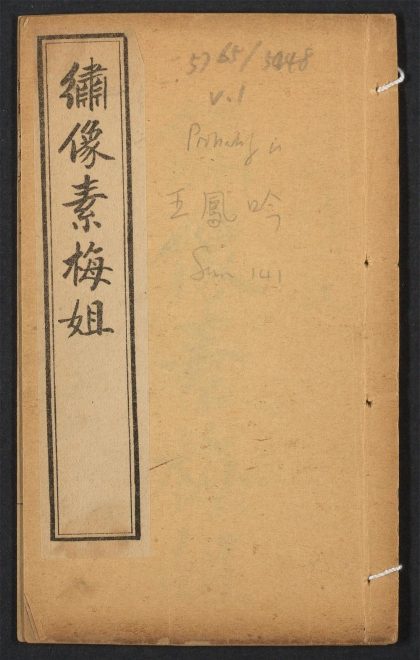 繡像素梅姐
5765/5448
v.1
Probably in
王鳳吟
141